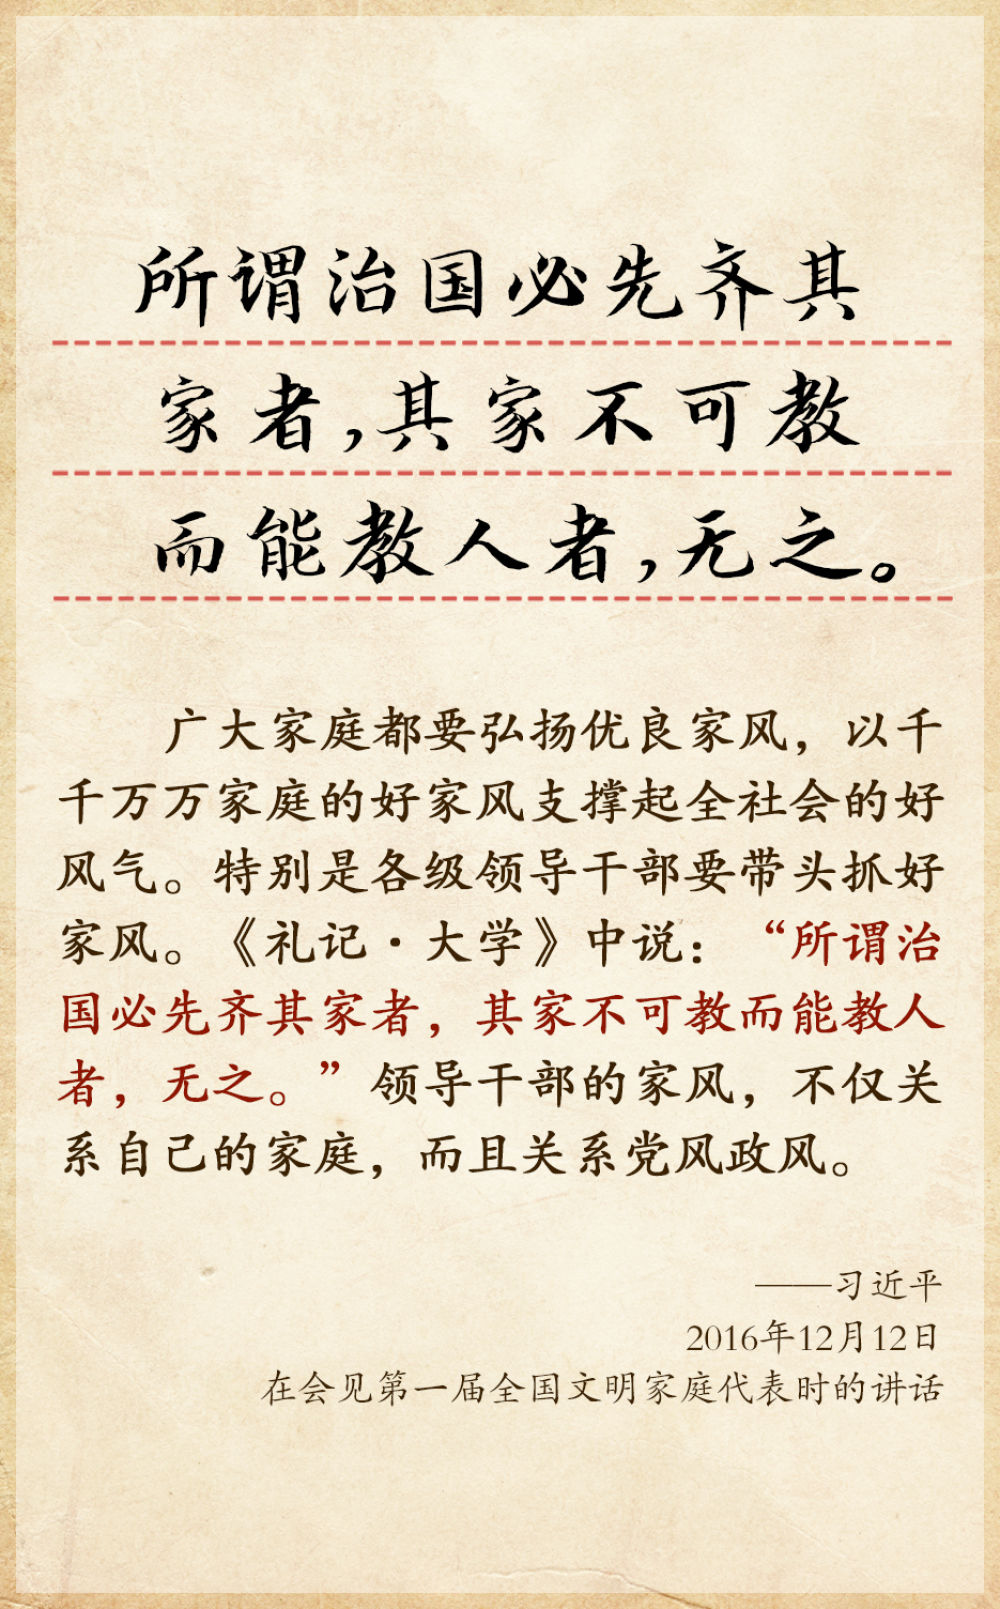 所谓治国必先齐其
家者,其家不可教
而能教人者,无之。
广大家庭都要弘扬优良家风，以千
千万万家庭的好家风支撑起全社会的好
风气。特别是各级领导干部要带头抓好
家风。《礼记·大学》中说：“所谓治
国必先齐其家者，其家不可教而能教人
者，无之。”领导干部的家风，不仅关
系自己的家庭，而且关系党风政风。
——习近平
2016年12月12日
在会见第一届全国文明家庭代表时的讲话